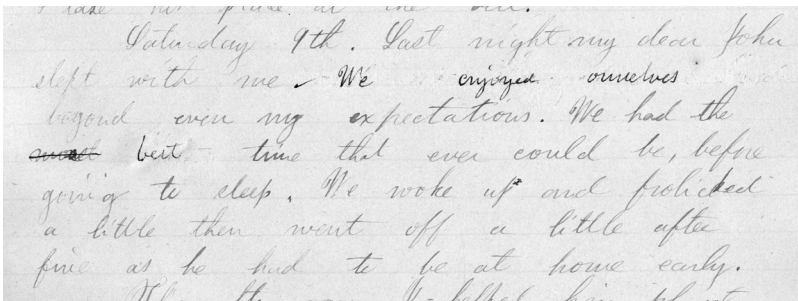 I take his place at the
Saturday 9th. Last night my dear John
slept with me. We enjoyed ourselves
beyond even my expectations. We had the
best time that ever could be, before
going to sleep. We woke up and frolicked
a little then went off a little after
five as he had to be at home early.
helped him